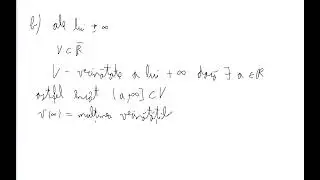 b) ale lui ± ∞
V ⊂ R̄
V - vecinătate a lui + ∞ dacă ∃ a ∈ R
astfel încât (a, ∞] ⊂ V
V(∞) = mulțimea vecinătățil